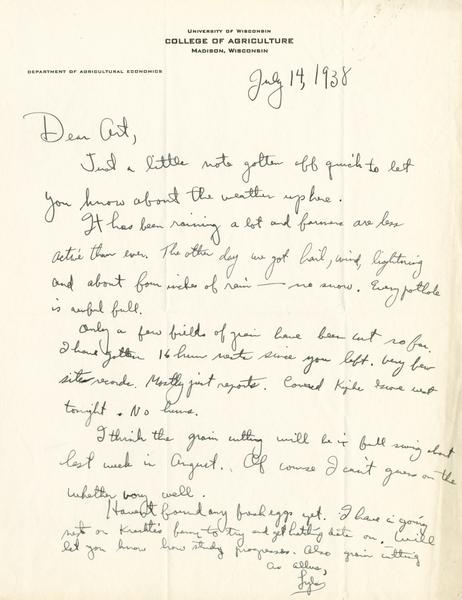 UNIVERSITY OF WISCONSIN
COLLEGE OF AGRICULTURE
MADISON, WISCONSIN
DEPARTMENT OF AGRICULTURAL ECONOMICS
July 14, 1938
Dear Art,
Just a little note gotten off quick to let
you know about the weather up here.
It has been raining a lot and farmers are less
active than ever. The other day we got hail, wind, lightning
and about four inches of rain — no snow. Every pothole
is awful full.
Only a few fields of grain have been cut so far.
I have gotten 16 hun nests since you left. Very few
site records. Mostly just reports. Covered west
tonight. No huns.
I think the grain cutting will be in full swing about
last week in August. Of course I can't guess on the
whether very well.
Haven't found any fresh eggs yet. I have a going
nest on farm to try and get hatching date on. Will
let you know how study progresses. Also grain cutting
as allus,
Lyle